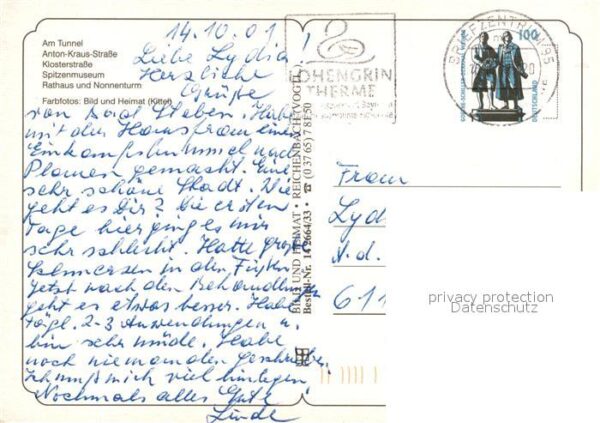 14.10.01!
Liebe Lydia
Herzliche
Grüße
von Bad Steben. Habe
mit der Hausfrau einen
Einkaufsbummel nach
Plauen gemacht. Eine
sehr schöne Stadt. Wie
geht es Dir? Die ersten
Tage hier ging es mir
sehr schlecht. Hatte große
Schmerzen in den Füßen
jetzt nach den Behandlung
geht es etwas besser. Habe
tägl. 2-3 Anwendungen u.
bin sehr müde. Habe
noch niemanden geschrieben.
Ich muß mich viel hinlegen.
Nochmals alles Gute
Linde
Am Tunnel
Anton-Kraus-Straße
Klosterstraße
Spitzenmuseum
Rathaus und Nonnenturm
Farbfotos: Bild und Heimat (Kittel)
BILD UND HEIMAT • REICHENBACH (VOGTL.)
Bestell-Nr. 14 2664/33 • ☎ (0 37 65) 7 81 50
LOHENGRIN
THERME
BRIEFZENTRUM 95
100
DEUTSCHLAND
Frau
Lyd
A.d.
611
privacy protection
Datenschutz